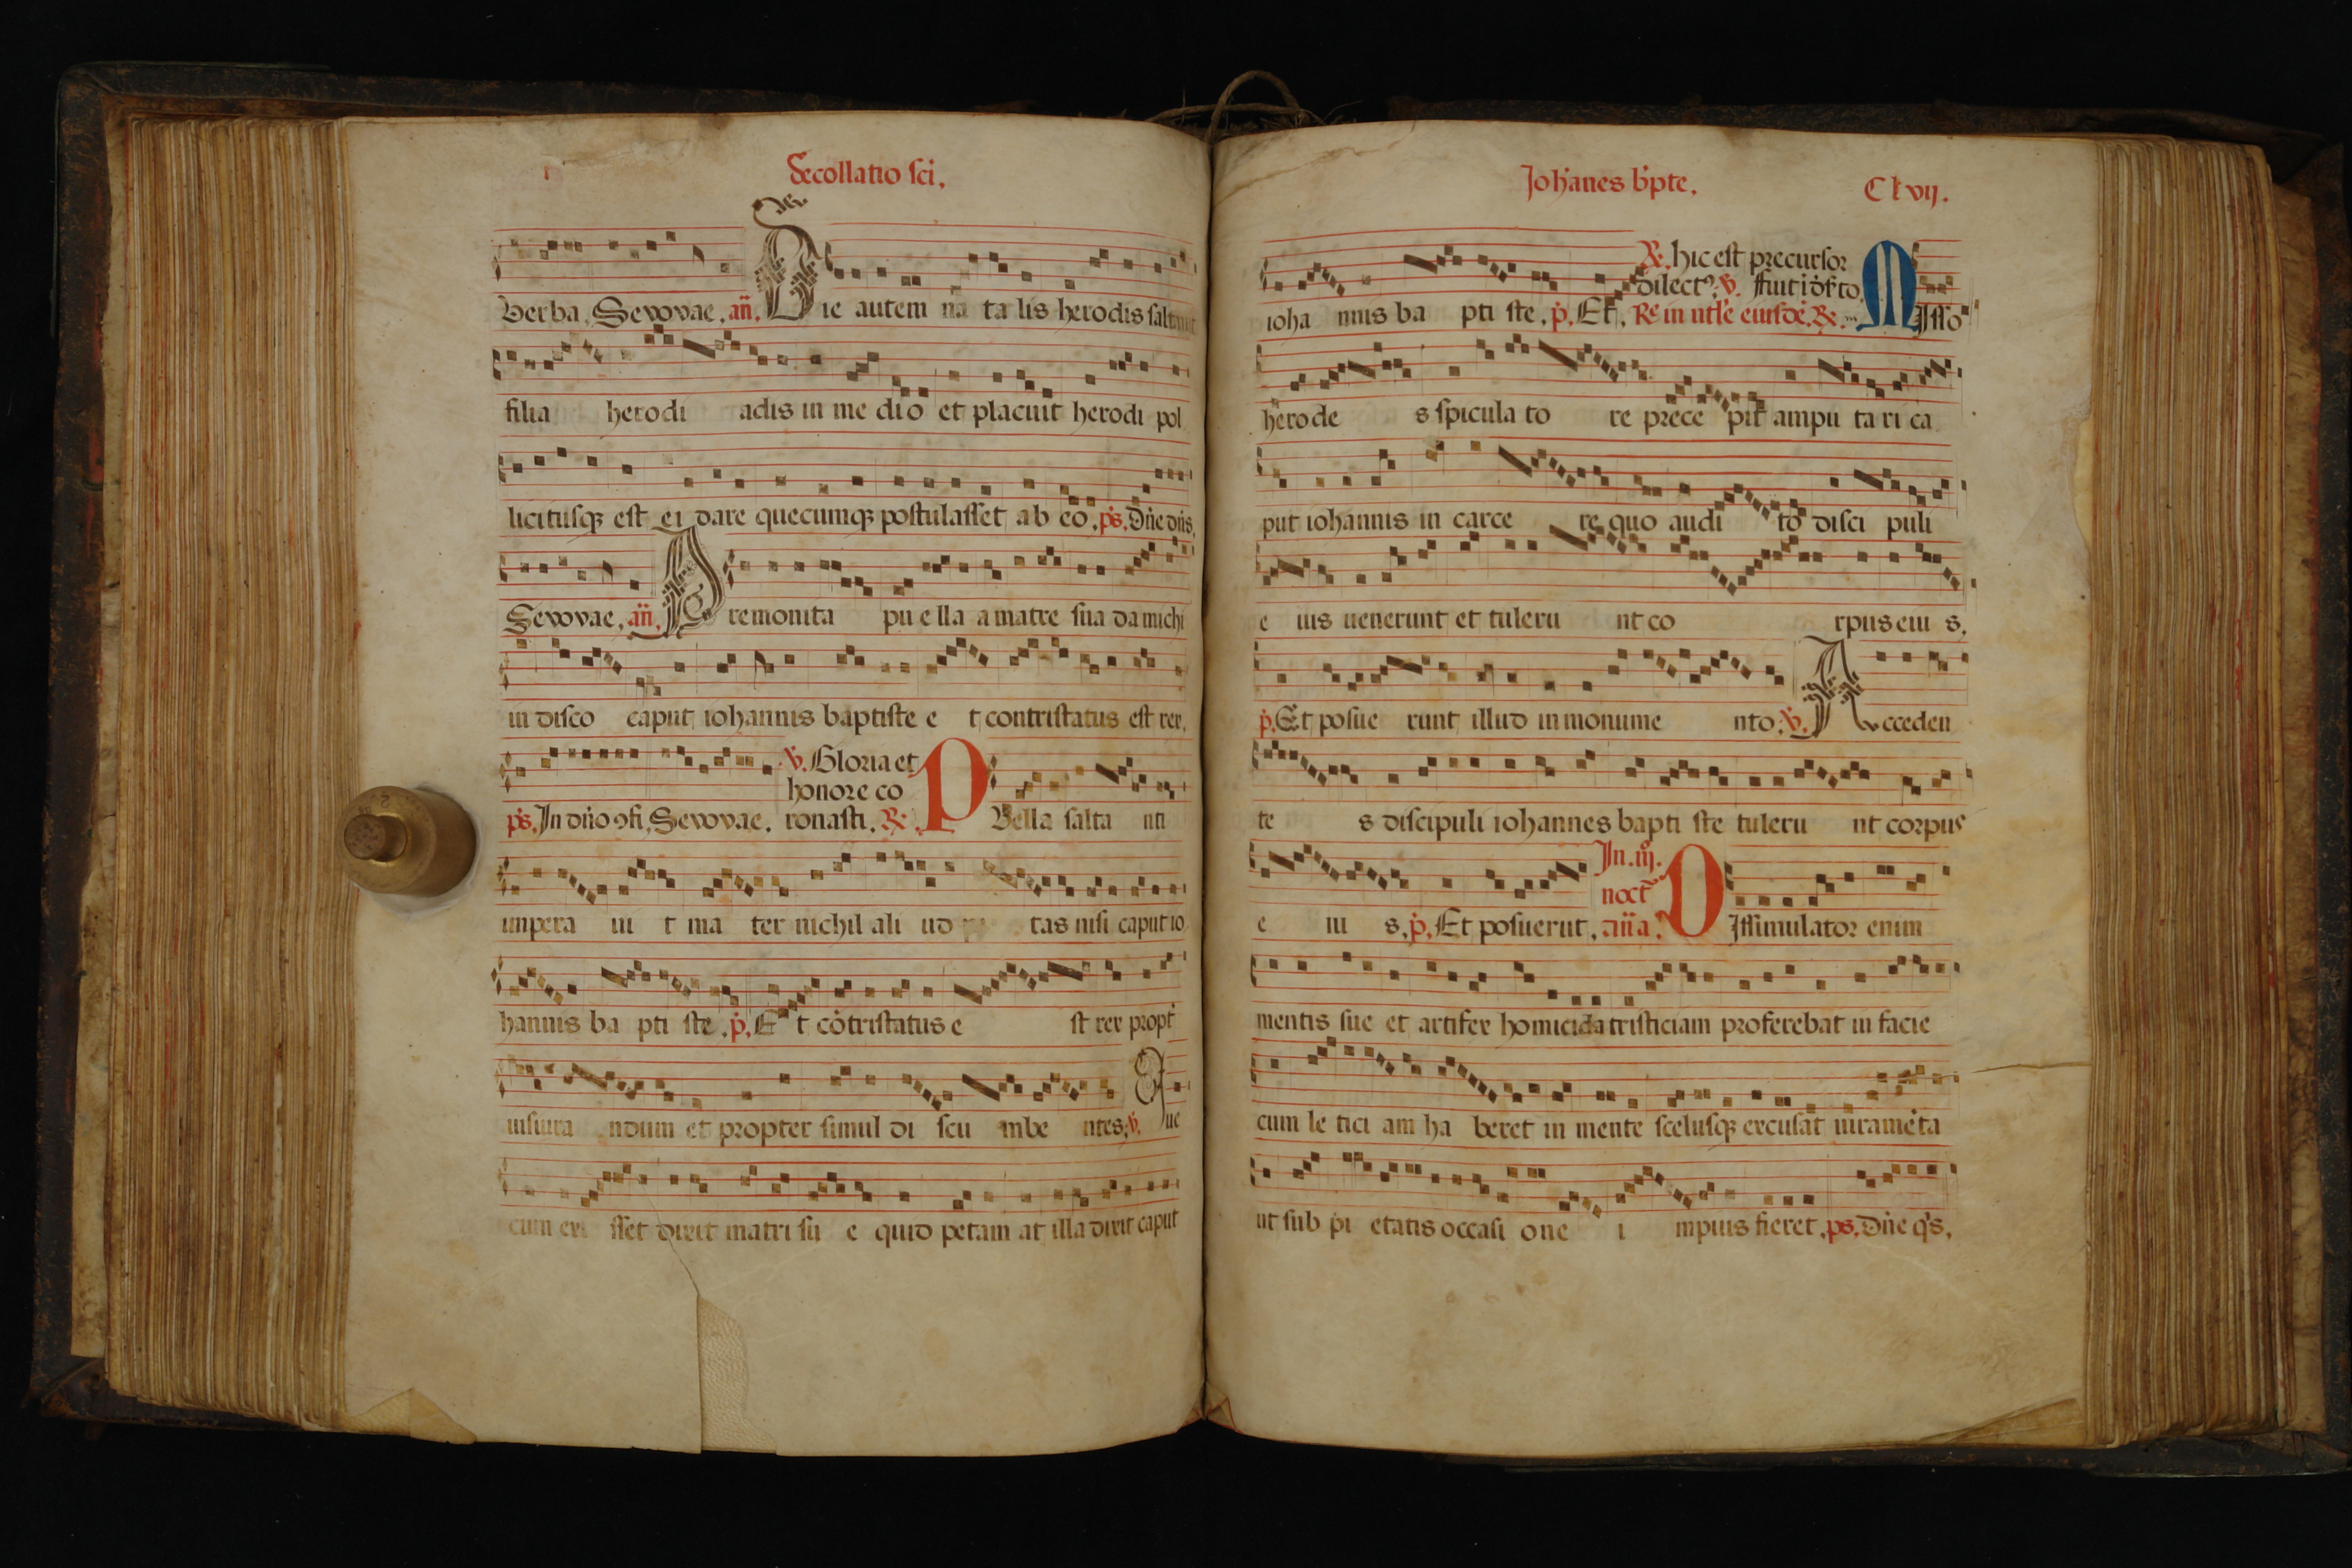 Decollatio sci.
Verba, Sevovae, añ. Die autem na ta lis herodis saltauit
filia herodi adis in me dio et placuit herodi pol
licitusq; est ei dare quecumq; postulasset ab eo, ps. Dñe dñs,
Sevovae, añ. Premonita pu e lla a matre sua da michi
in disco caput iohannis baptiste e t contristatus est rex,
v. Gloria et
honore co
ps. In dño 9fi, Sevovae. ronasti. R. Pvella salta nti
impera ui t ma ter nichil ali ud tas nisi caput io
hannis ba pti ste, p. E t cōtristatus e st rex propt
iusiura ndum et propter simul di scu mbe ntes; v. Que
cum exi sset dixit matri su e quid petam at illa dixit caput
Johanes bpte. Clvij.
R. hic est precursor
dilect9; v. ffuit
ioha nnis ba pti ste, p. Et, Misso
herode s spicula to re prece pit ampu ta ri ca
put iohannis in carce re quo audi to disci puli
e ius uenerunt et tuleru nt co rpus eiu s,
p. Et posue runt illud in monume nto; v. Acceden
te s discipuli iohannes bapti ste tuleru nt corpus
In .iij.
noct
e iu s, p. Et posuerut, añ a. Dissimulator enim
mentis sue et artifex homicida tristiciam proferebat in facie
cum le tici am ha beret in mente scelusq; excusat iuramēta
ut sub pi etatis occasi one i mpius fieret, ps, Dñe q's,